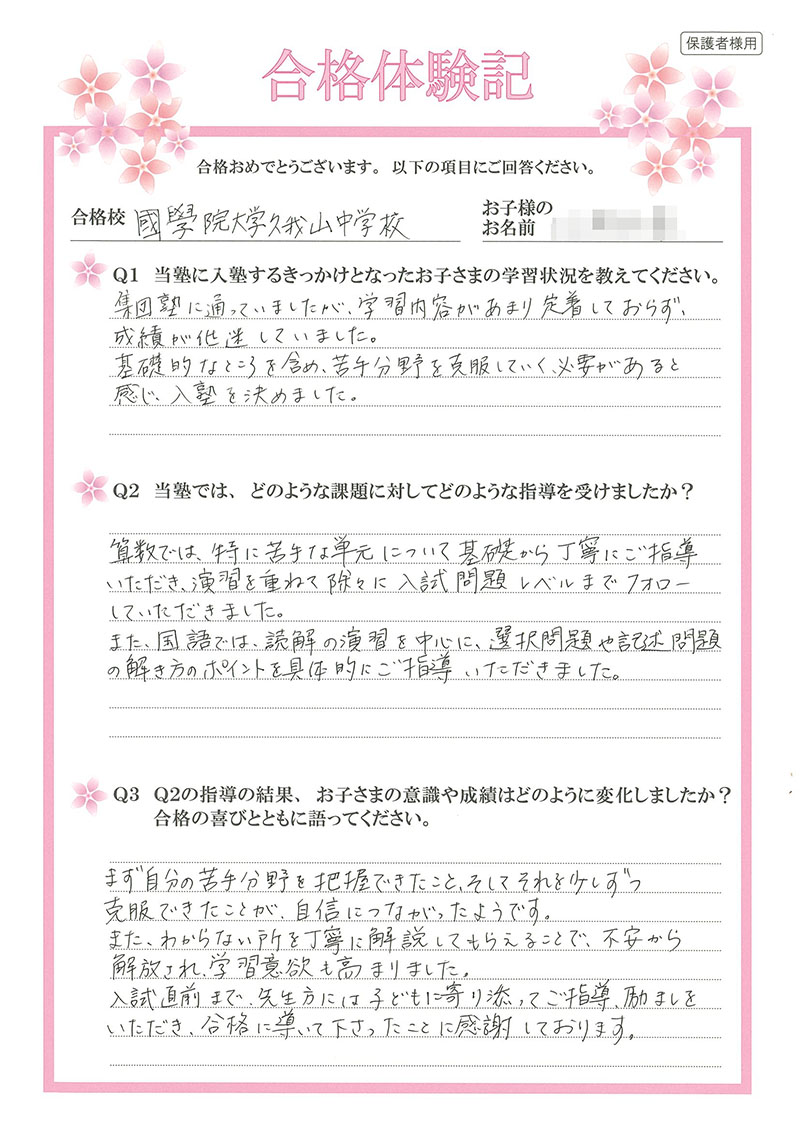 保護者様用
合格体験記
合格おめでとうございます。以下の項目にご回答ください。
合格校 國學院大学久我山中学校
お子様の
お名前
Q1 当塾に入塾するきっかけとなったお子さまの学習状況を教えてください。
集団塾に通っていましたが、学習内容があまり定着しておらず、
成績が低迷していました。
基礎的なところを含め、苦手分野を克服していく必要があると
感じ、入塾を決めました。
Q2 当塾では、どのような課題に対してどのような指導を受けましたか？
算数では、特に苦手な単元について基礎から丁寧にご指導
いただき、演習を重ねて除々に入試問題レベルまでフォロー
していただきました。
また、国語では、読解の演習を中心に、選択問題や記述問題
の解き方のポイントを具体的にご指導いただきました。
Q3 Q2の指導の結果、お子さまの意識や成績はどのように変化しましたか？
合格の喜びとともに語ってください。
まず自分の苦手分野を把握できたこと、そしてそれを少しずつ
克服できたことが、自信につながったようです。
また、わからない所を丁寧に解説してもらえることで、不安から
解放され、学習意欲も高まりました。
入試直前まで、先生方には子どもに寄り添ってご指導、励ましを
いただき、合格に導いて下さったことに感謝しております。